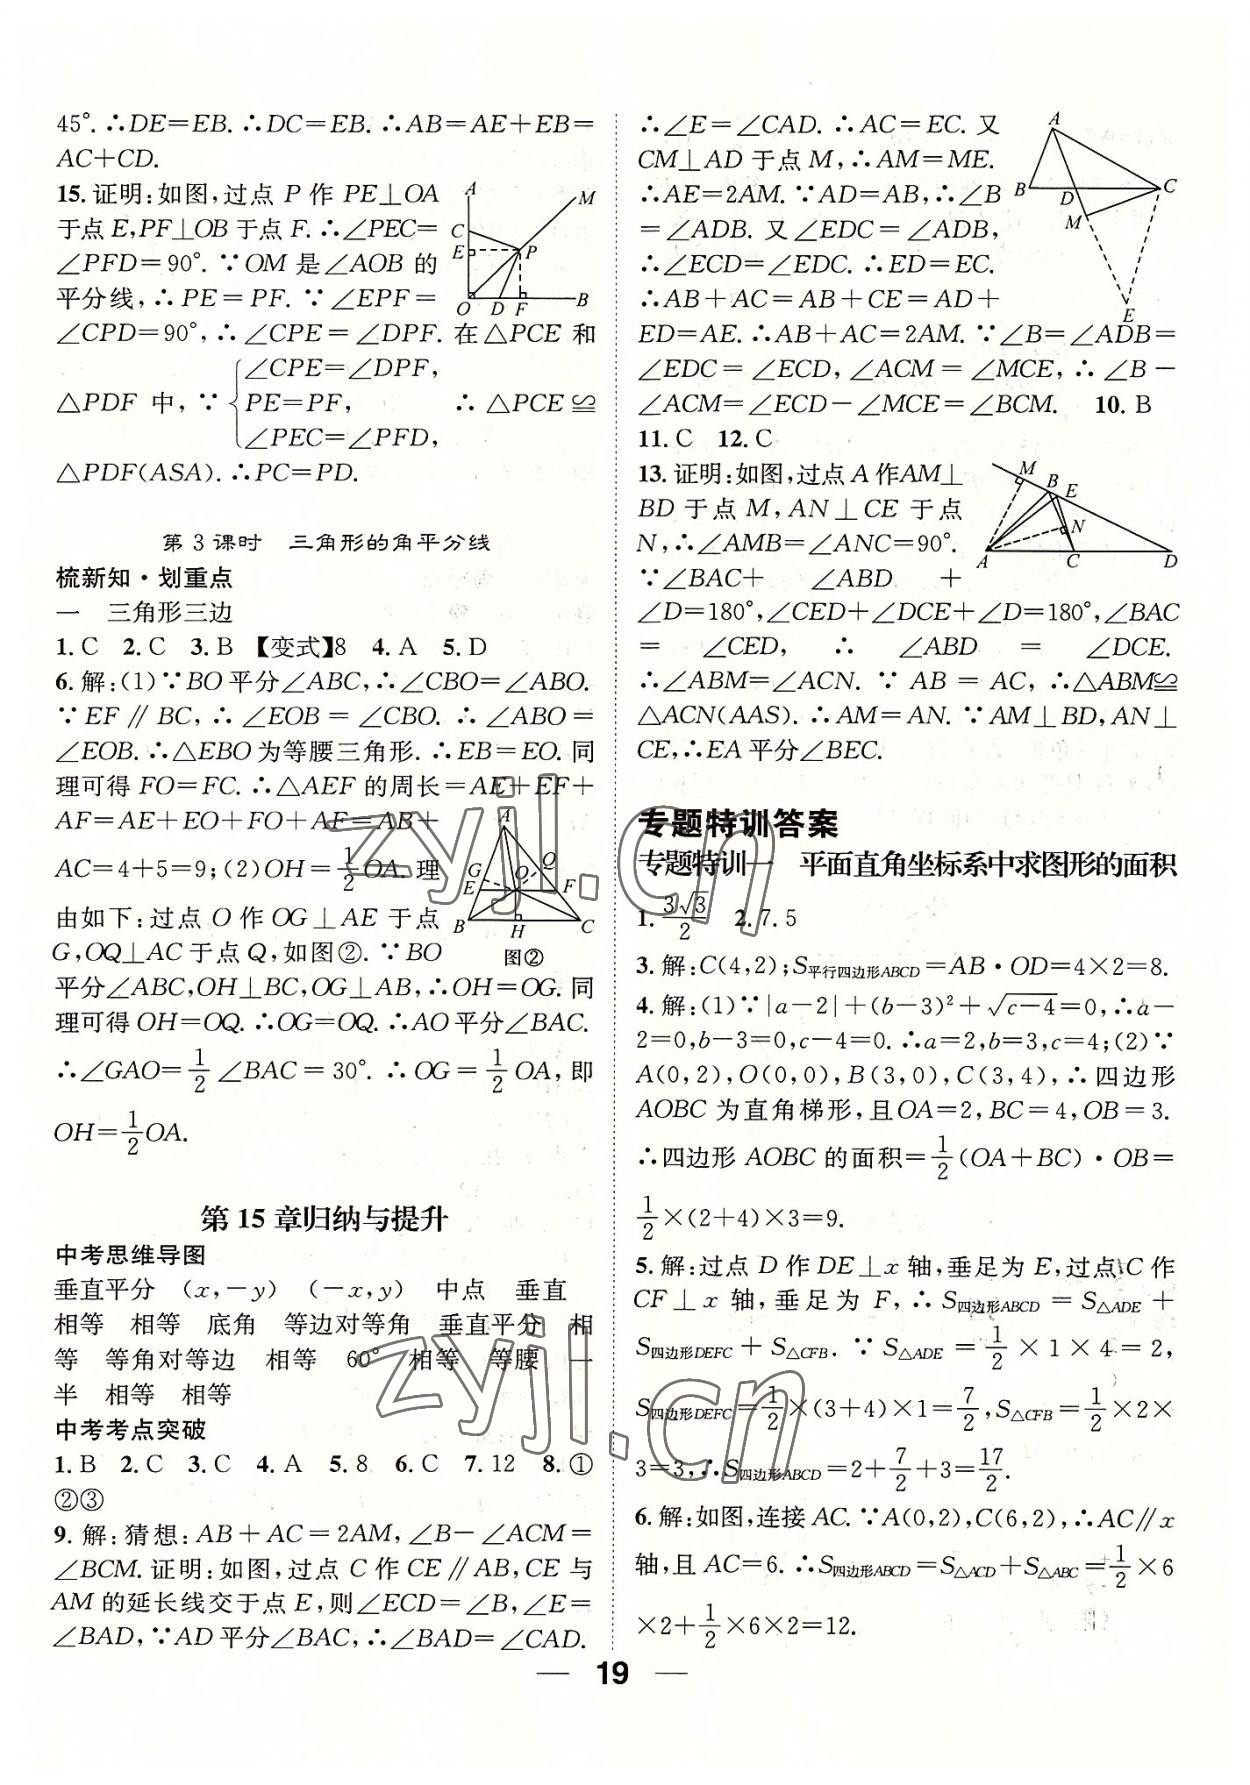 45°. ∴DE=EB. ∴DC=EB. ∴AB=AE+EB=
AC+CD.
15. 证明:如图,过点 P 作 PE⊥OA
于点 E,PF⊥OB 于点 F. ∴∠PEC=
∠PFD=90°. ∵OM 是∠AOB 的
平分线,∴PE=PF. ∵∠EPF=
∠CPD=90°,∴∠CPE=∠DPF. 在△PCE 和
∠CPE=∠DPF,
△PDF 中,∵ PE=PF, ∴△PCE≌
∠PEC=∠PFD,
△PDF(ASA). ∴PC=PD.
A M C E P O D F B
第 3 课时 三角形的角平分线
梳新知·划重点
一 三角形三边
1. C 2. C 3. B 【变式】8 4. A 5. D
6. 解:(1)∵BO 平分∠ABC,∴∠CBO=∠ABO.
∵EF∥BC,∴∠EOB=∠CBO. ∴∠ABO=
∠EOB. ∴△EBO 为等腰三角形. ∴EB=EO. 同
理可得 FO=FC. ∴△AEF 的周长=AE+EF+
AF=AE+EO+FO+AF=AB+
AC=4+5=9;(2)OH=1/2OA. 理
由如下:过点 O 作 OG⊥AE 于点
G,OQ⊥AC 于点 Q,如图②. ∵BO
平分∠ABC,OH⊥BC,OG⊥AB,∴OH=OG. 同
理可得 OH=OQ. ∴OG=OQ. ∴AO 平分∠BAC.
∴∠GAO=1/2∠BAC=30°. ∴OG=1/2OA,即
OH=1/2OA.
A G Q E O F B H C
图②
第 15 章归纳与提升
中考思维导图
垂直平分 (x,-y) (-x,y) 中点 垂直
相等 相等 底角 等边对等角 垂直平分 相
等 等角对等边 相等 60° 相等 等腰 一
半 相等 相等
中考考点突破
1. B 2. C 3. C 4. A 5. 8 6. C 7. 12 8. ①
②③
9. 解:猜想:AB+AC=2AM,∠B-∠ACM=
∠BCM. 证明:如图,过点 C 作 CE∥AB,CE 与
AM 的延长线交于点 E,则∠ECD=∠B,∠E=
∠BAD,∵AD 平分∠BAC,∴∠BAD=∠CAD.
∴∠E=∠CAD. ∴AC=EC. 又
CM⊥AD 于点 M,∴AM=ME.
∴AE=2AM. ∵AD=AB,∴∠B
=∠ADB. 又∠EDC=∠ADB,
∴∠ECD=∠EDC. ∴ED=EC.
∴AB+AC=AB+CE=AD+
ED=AE. ∴AB+AC=2AM. ∵∠B=∠ADB=
∠EDC=∠ECD,∠ACM=∠MCE,∴∠B-
∠ACM=∠ECD-∠MCE=∠BCM. 10. B
A B D C M E
11. C 12. C
13. 证明:如图,过点 A 作AM⊥
BD 于点 M,AN⊥CE 于点
N,∴∠AMB=∠ANC=90°.
∵∠BAC+∠ABD+
∠D=180°,∠CED+∠DCE+∠D=180°,∠BAC
=∠CED,∴∠ABD=∠DCE.
∴∠ABM=∠ACN. ∵AB=AC,∴△ABM≌
△ACN(AAS). ∴AM=AN. ∵AM⊥BD,AN⊥
CE,∴EA 平分∠BEC.
M B E N A C D
专题特训答案
专题特训一 平面直角坐标系中求图形的面积
1. 3√3/2 2. 7.5
3. 解:C(4,2);S平行四边形ABCD=AB·OD=4×2=8.
4. 解:(1)∵|a-2|+(b-3)²+√(c-4)=0,∴a-
2=0,b-3=0,c-4=0. ∴a=2,b=3,c=4;(2)∵
A(0,2),O(0,0),B(3,0),C(3,4),∴四边形
AOBC 为直角梯形,且OA=2,BC=4,OB=3.
∴四边形 AOBC 的面积=1/2(OA+BC)·OB=
1/2×(2+4)×3=9.
5. 解:过点 D 作 DE⊥x 轴,垂足为 E,过点 C 作
CF⊥x 轴,垂足为 F,∴S四边形ABCD=S△ADE+
S四边形DEFC+S△CFB. ∵S△ADE=1/2×1×4=2,
S四边形DEFC=1/2×(3+4)×1=7/2,S△CFB=1/2×2×
3=3,∴S四边形ABCD=2+7/2+3=17/2.
6. 解:如图,连接 AC. ∵A(0,2),C(6,2),∴AC∥x
轴,且 AC=6. ∴S四边形ABCD=S△ACD+S△ABC=1/2×6
×2+1/2×6×2=12.
zyjl.cn
zyjl.cn
— 19 —